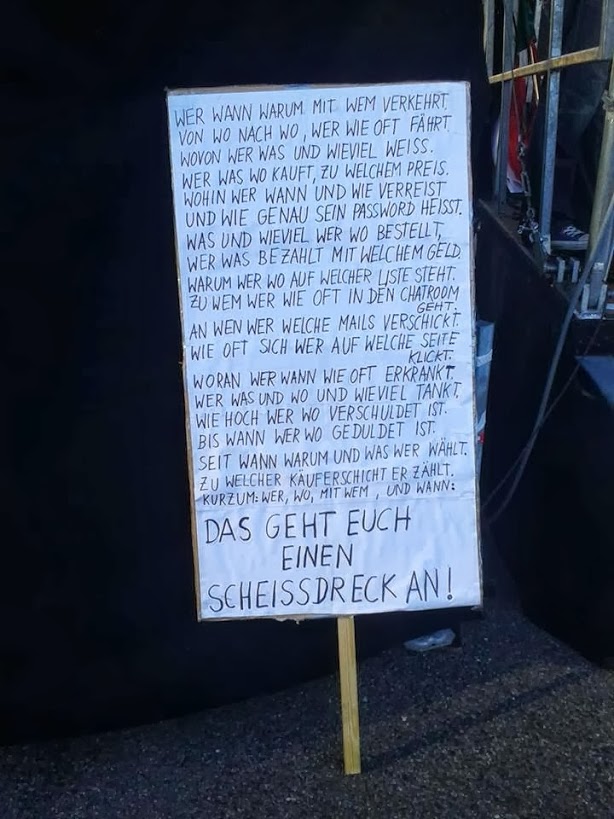 WER WANN WARUM MIT WEM VERKEHRT.
VON WO NACH WO, WER WIE OFT FÄHRT.
WOVON WER WAS UND WIEVIEL WEISS.
WER WAS WO KAUFT, ZU WELCHEM PREIS.
WOHIN WER WANN UND WIE VERREIST
UND WIE GENAU SEIN PASSWORD HEISST.
WAS UND WIEVIEL WER WO BESTELLT,
WER WAS BEZAHLT MIT WELCHEM GELD.
WARUM WER WO AUF WELCHER LISTE STEHT.
ZU WEM WER WIE OFT IN DEN CHATROOM
GEHT.
AN WEN WER WELCHE MAILS VERSCHICKT.
WIE OFT SICH WER AUF WELCHE SEITE
KLICKT.
WORAN WER WANN WIE OFT ERKRANKT.
WER WAS UND WO UND WIEVIEL TANKT.
WIE HOCH WER WO VERSCHULDET IST.
BIS WANN WER WO GEDULDET IST.
SEIT WANN WARUM UND WAS WER WÄHLT.
ZU WELCHER KÄUFERSCHICHT ER ZÄHLT.
KURZUM: WER, WO, MIT WEM, UND WANN:
DAS GEHT EUCH
EINEN
SCHEISSDRECK AN!